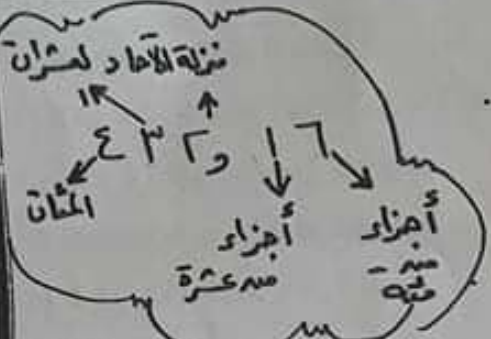 منزلة الآحاد العشرات
٤٣٢,١٦
المئات
أجزاء
من عشرة
أجزاء
من
مئة